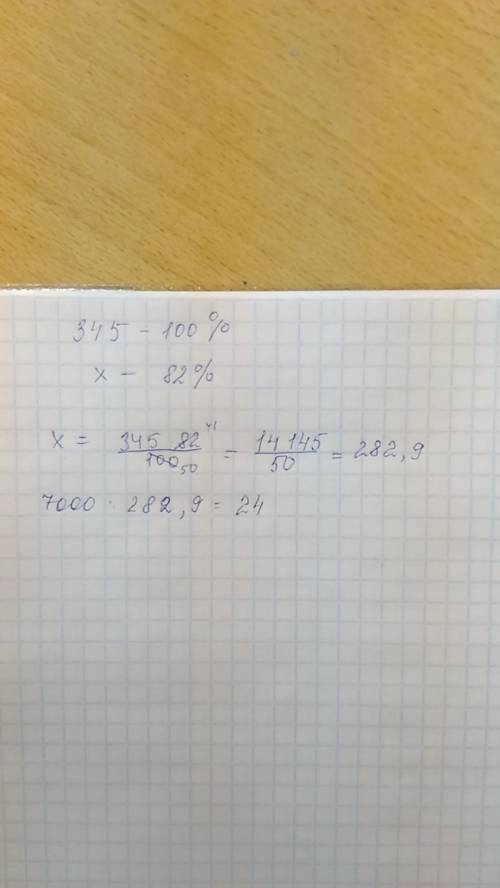 345 - 100%
x - 82%
x = 345 82⁴¹ / 100₅₀ = 14 145 / 50 = 282,9
7000 · 282,9 = 24